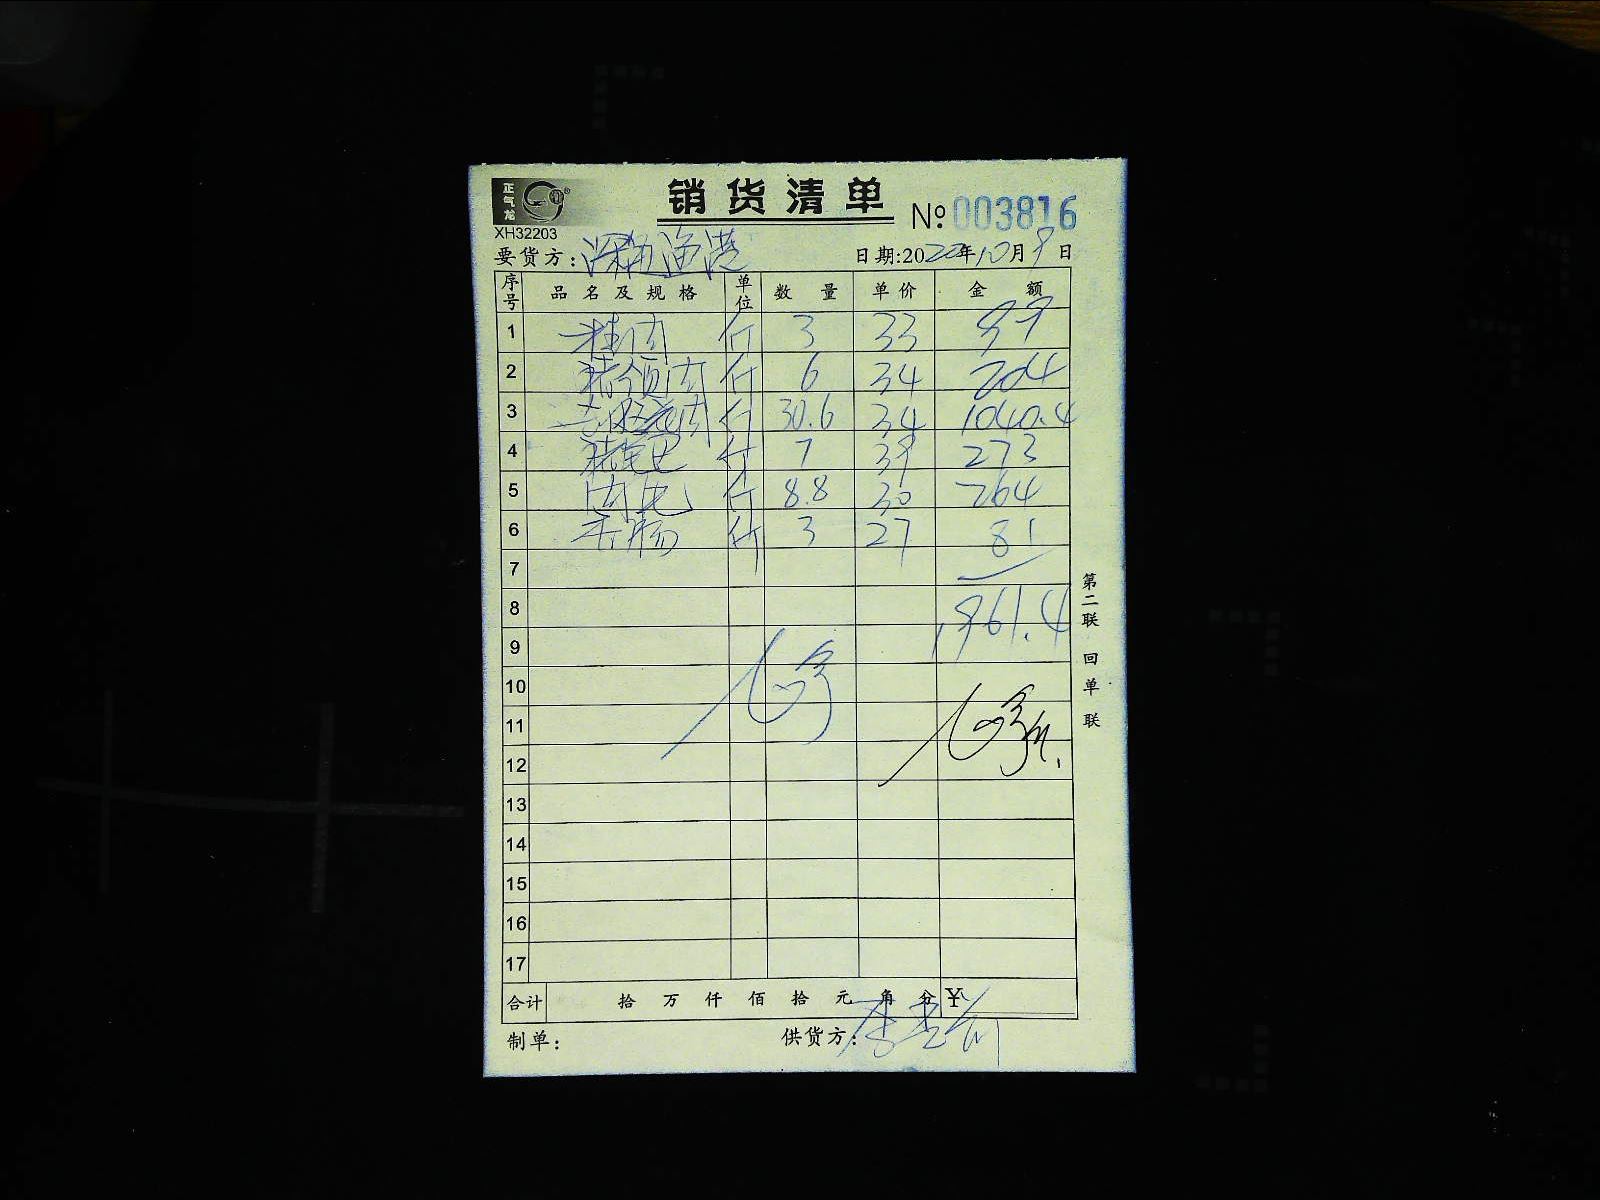 正气龙
销货清单
№ 003816
XH32203
要货方: 渔港 日期:2022年10月9日
序号 品名及规格 单位 数量 单价 金额
1 肉 斤 3 33 99
2 猪领肉 斤 6 34 204
3 肉 斤 30.6 34 1040.4
4 猪 斤 7 39 273
5 肉 斤 8.8 30 264
6 香肠 斤 3 27 81
7
8 1961.4
9
10
11
12
13
14
15
16
17
合计 拾万仟佰拾元角分 ¥
制单: 供货方: 李
第二联 回单联